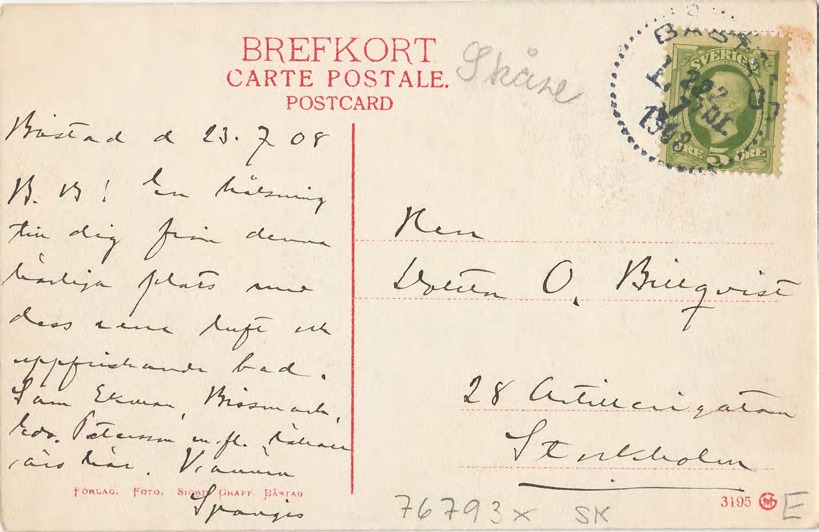 BREFKORT
CARTE POSTALE.
POSTCARD
Skåne
SVERIGE
1908
5 ÖRE
Båstad d 23.7 08
B. B! En hälsning
till dig från denna
härliga plats med
dess rena luft och
uppfriskande bad.
Sam Ekman, Bismark,
Edv. Peterson m.fl.
äro här. Vännen
Herr
Doktor O. Billqvist
28 Artillerigatan
Stockholm
FÖRLAG. FOTO. SIGRID GRAFF, BÅSTAD
76793x SK
3195
E